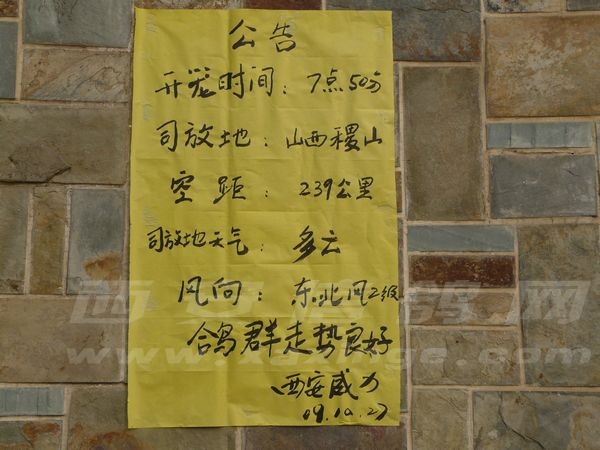 公告
开笼时间：7点50分
司放地：山西稷山
空距：239公里
司放地天气：多云
风向：东北风2级
鸽群走势良好
西安威力
09.10.27